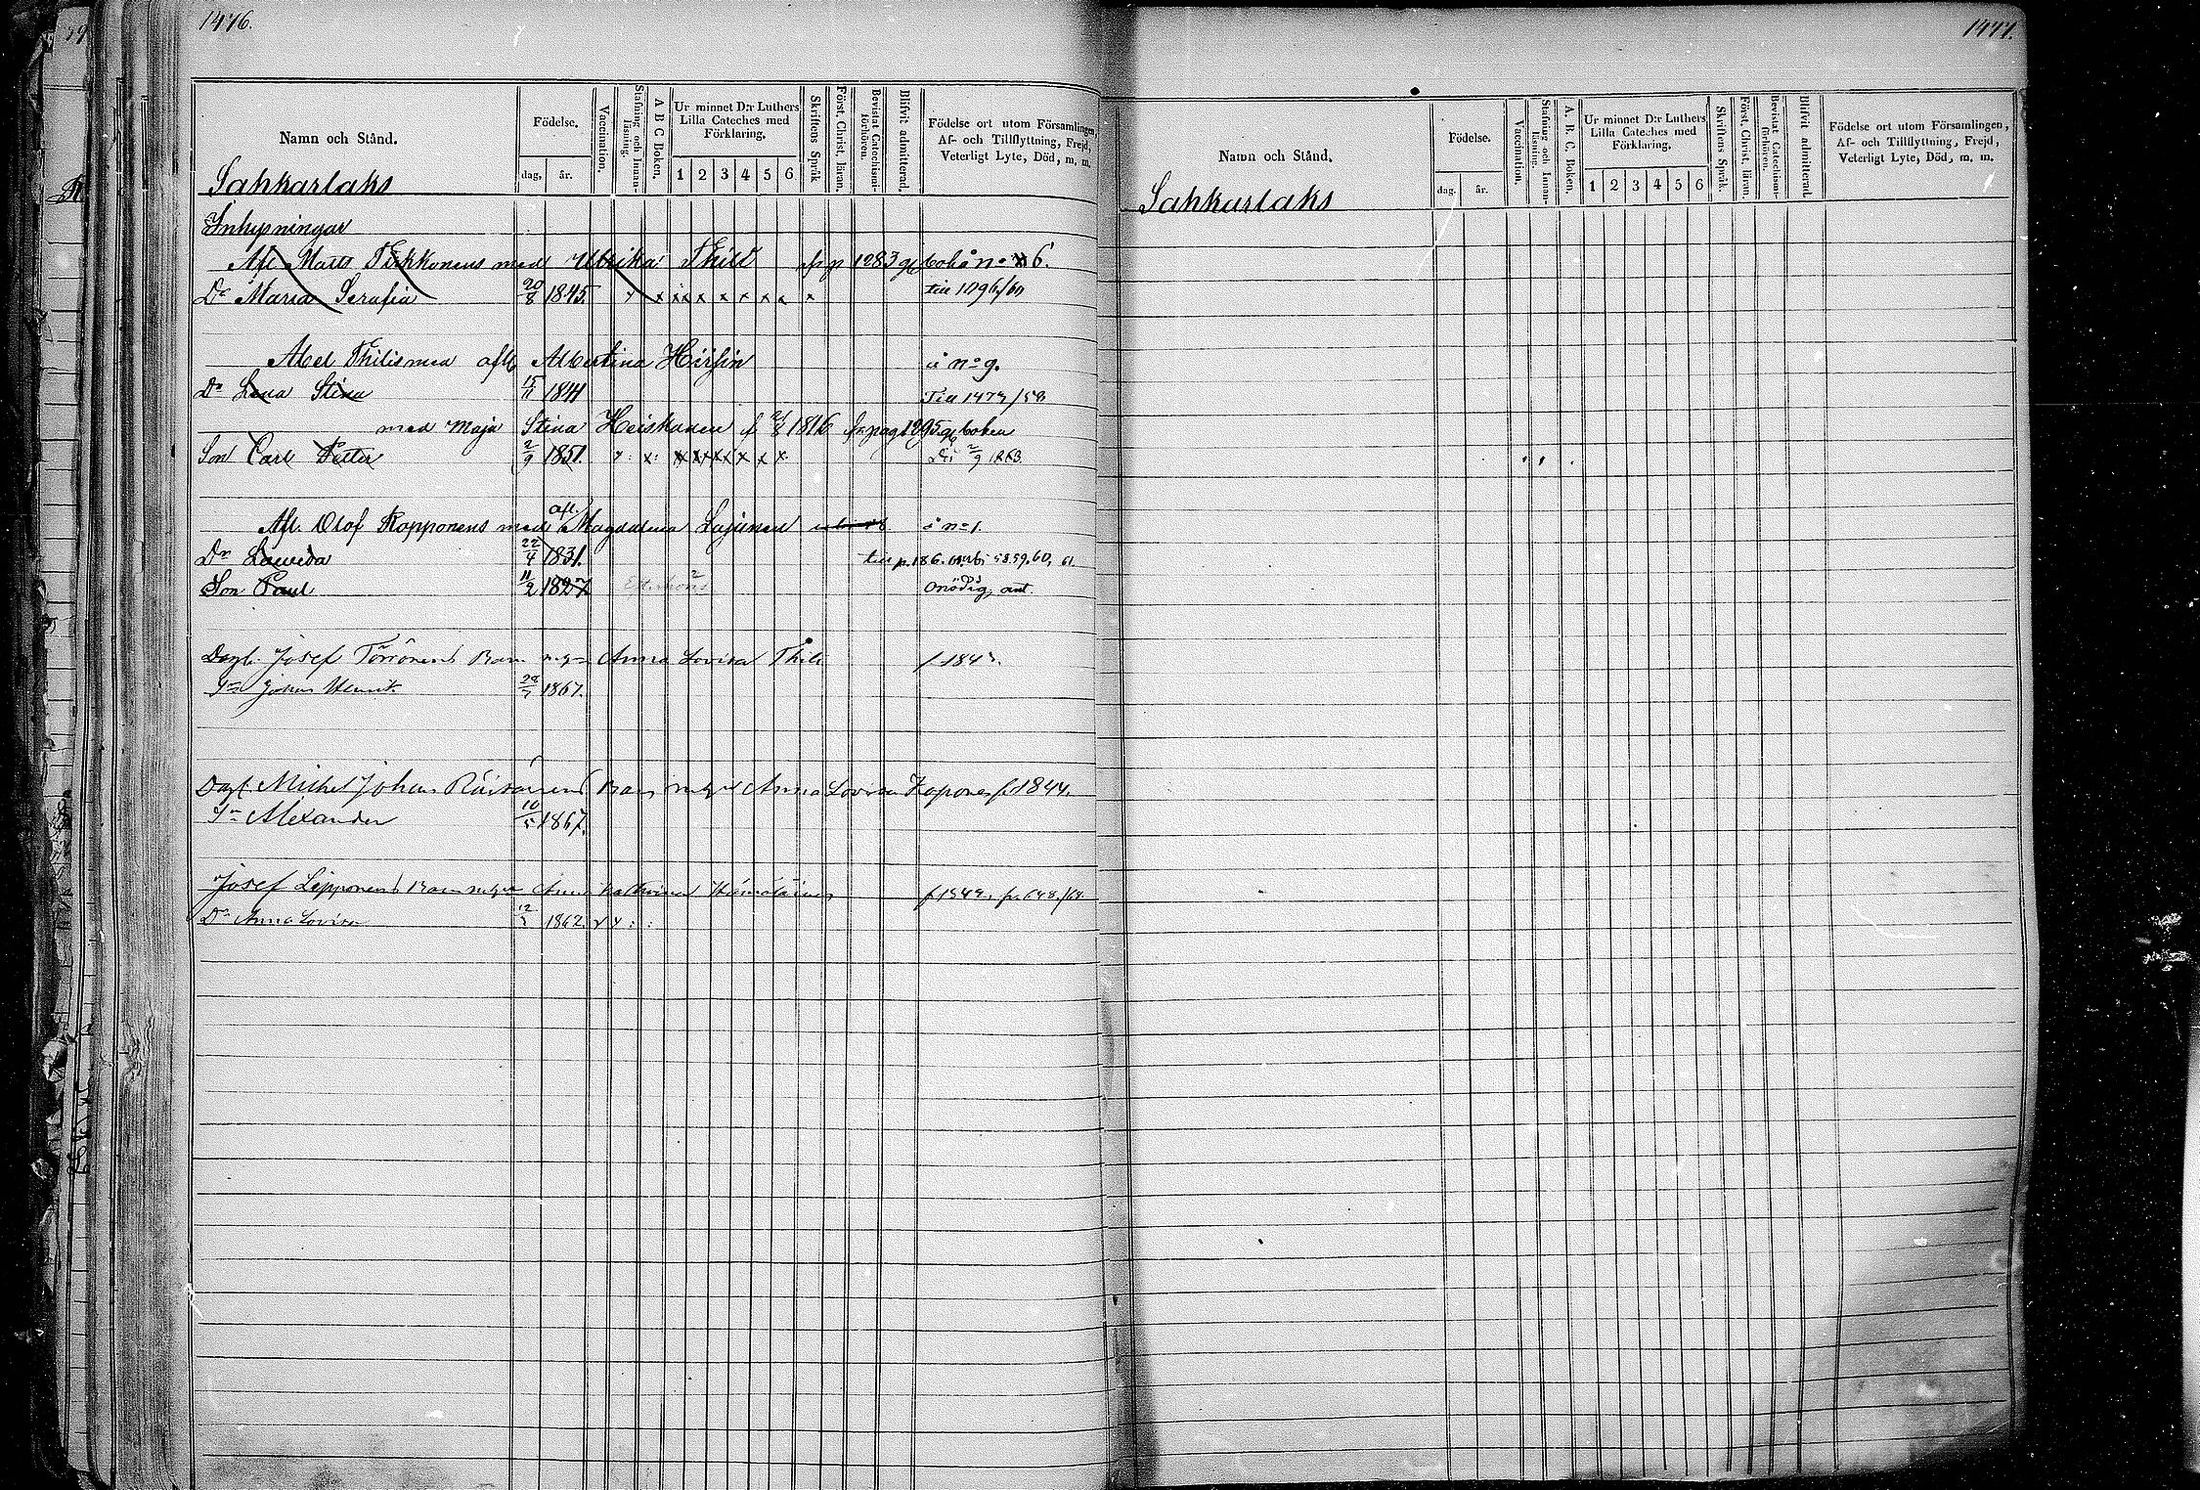 1476.
Namn och Stånd.
Födelse.
dag.
år.
Vaccination.
Stafning och Innan-läsning.
A B C Boken.
Ur minnet D:r Luthers
Lilla Cateches med
Förklaring.
1 2 3 4 5 6
Skriftens Språk
Först. Christ. läran.
Bevistat Catechismi-förhören.
Blifvit admitterad.
Födelse ort utom Församlingen,
Af- och Tillflyttning, Frejd,
Veterligt Lyte, Död, m. m.
Sakkarlaks
Inhysningar
Afl Matts Pirkkonens med Ulrika Thild fr p 1283 g boken å no 6.
Dr Maria Serafia 20/8 1845. x x x x x x x x till 1096/60
Abel Thilis med afl. Albertina Hirsin å no 9.
Dr Lena Stina 15/11 1844 Till 1473/58
med Maja Stina Heiskanen f 1816 fr pag 1295 g boken
Son Carl Petter 2/9 1851. x x x x x x x x 2/9
Afl. Olof Kopponens med afl. Magdalena Lajunen å no 1.
Dr Loviisa 22/4 1831. till p. 186. 58.59.60, 61
Son Paul 11/2 1827 onödig ant.
Dagk. Josef Törrönens Barn m. Anna Lovisa Thile f 184
Sn Johan Henrik 28/7 1867.
Dagk. Michel Johan Räisänens Barn m Anna Lovisa Kaponen f 1844.
Sn Alexander 10/5 1867.
Josef Lipponens Barn m Anna Kathrina Hämäläinen p. 648./68.
Dr Anna Lovisa 12 1862.
1477.
Namn och Stånd.
Födelse.
dag.
år.
Vaccination.
Stafning och Innan-läsning.
A. B. C. Boken.
Ur minnet D:r Luthers
Lilla Cateches med
Förklaring.
1 2 3 4 5 6
Skriftens Språk.
Först. Christ. läran.
Bevistat Catechismi-förhören.
Blifvit admitterad.
Födelse ort utom Församlingen,
Af- och Tillflyttning, Frejd,
Veterligt Lyte, Död, m. m.
Sakkarlaks